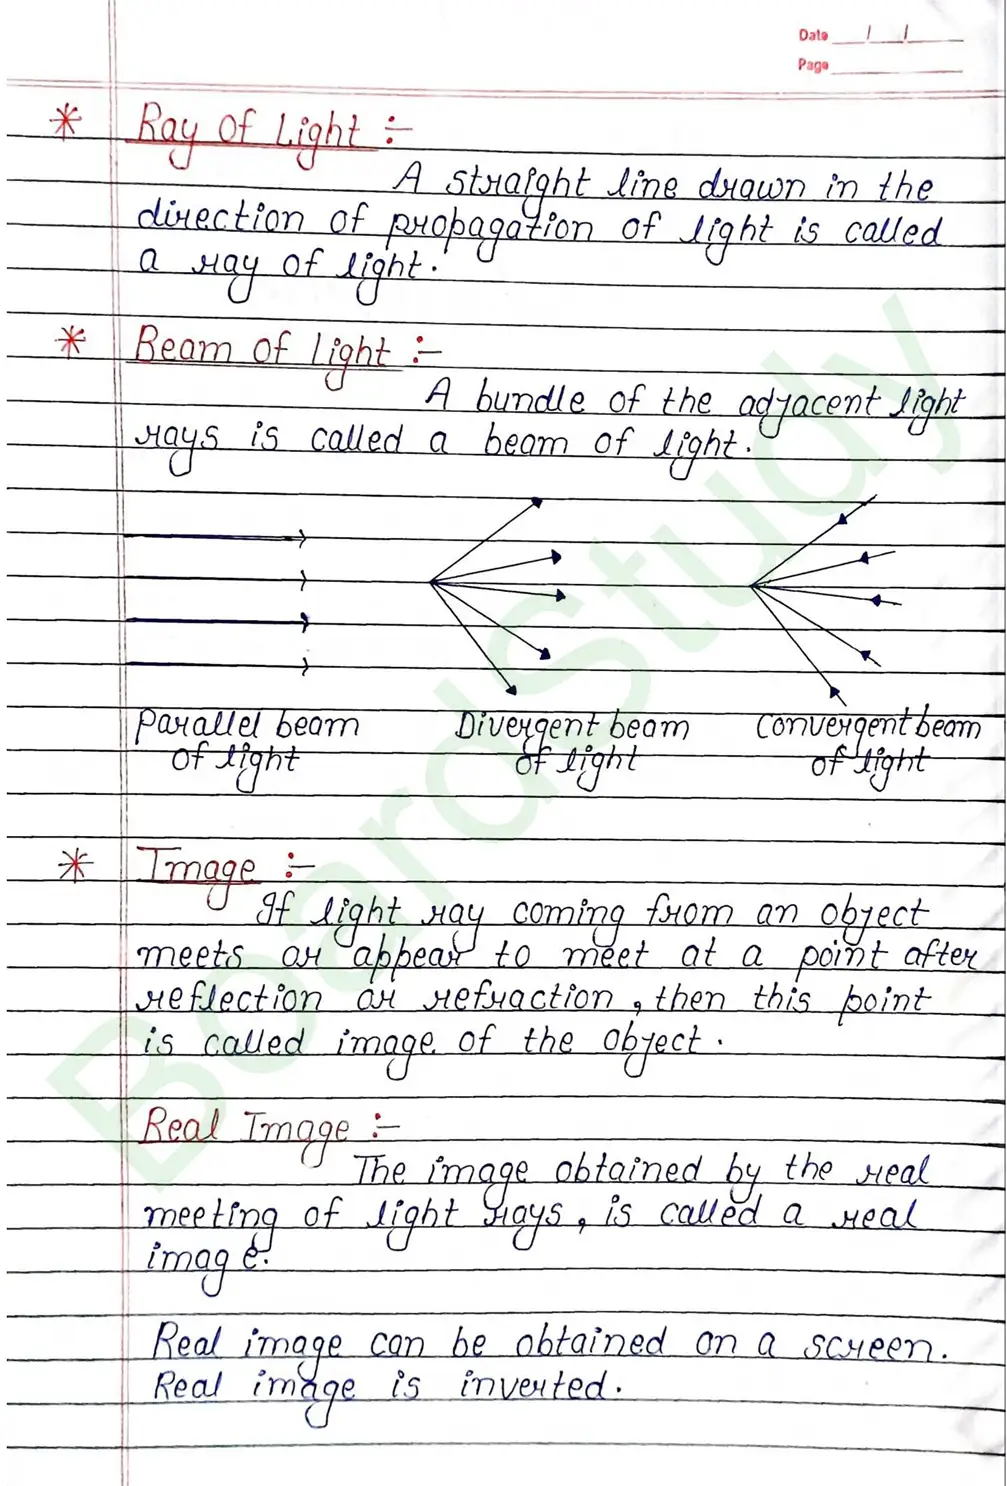 Date / /
Page
* Ray of Light :-
A straight line drawn in the
direction of propagation of light is called
a ray of light.
* Beam of Light :-
A bundle of the adjacent light
rays is called a beam of light.
Parallel beam
of light
Divergent beam
of light
Convergent beam
of light
* Image :-
If light ray coming from an object
meets or appear to meet at a point after
reflection or refraction, then this point
is called image of the object.
Real Image :-
The image obtained by the real
meeting of light rays, is called a real
image.
Real image can be obtained on a screen.
Real image is inverted.
BoardStudy